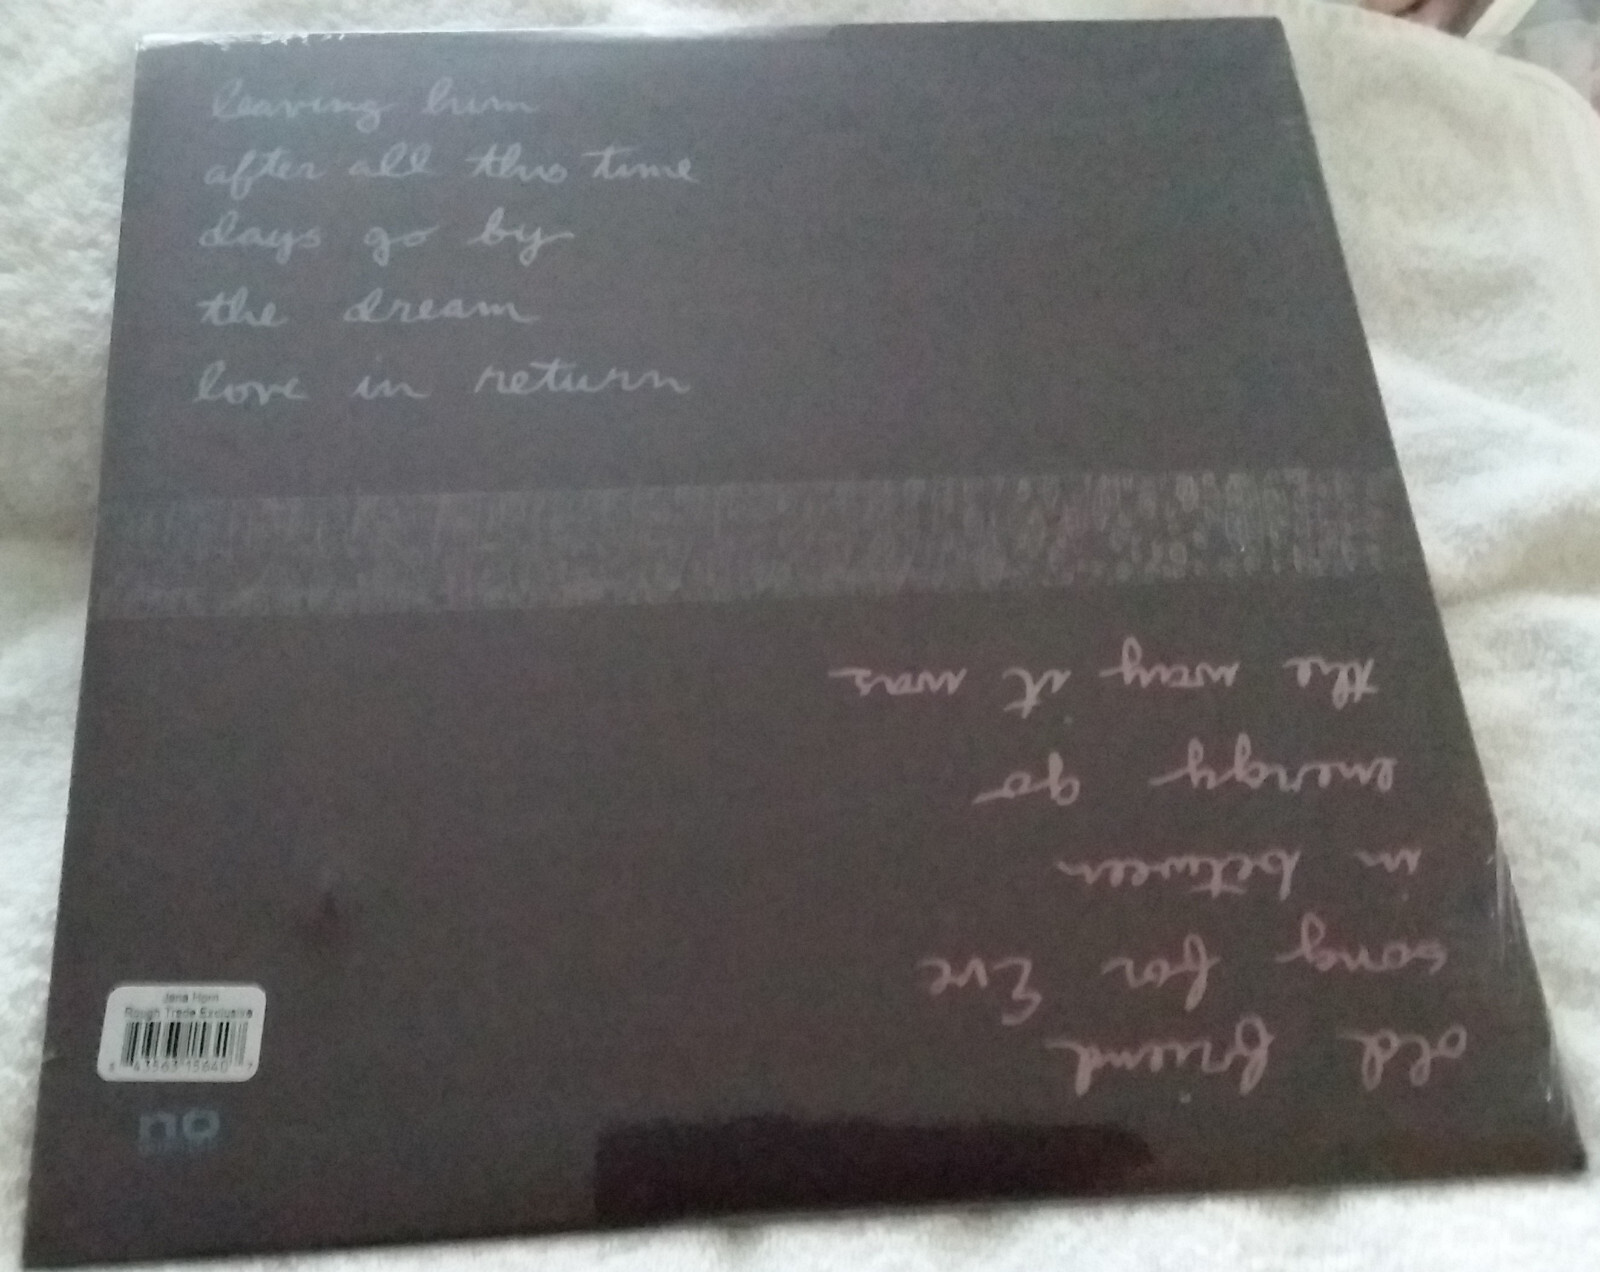 leaving him
after all this time
days go by
the dream
love in return
old friend
song for Eve
in between
energy go
the way it was
Jana Horn
Rough Trade Exclusive
no